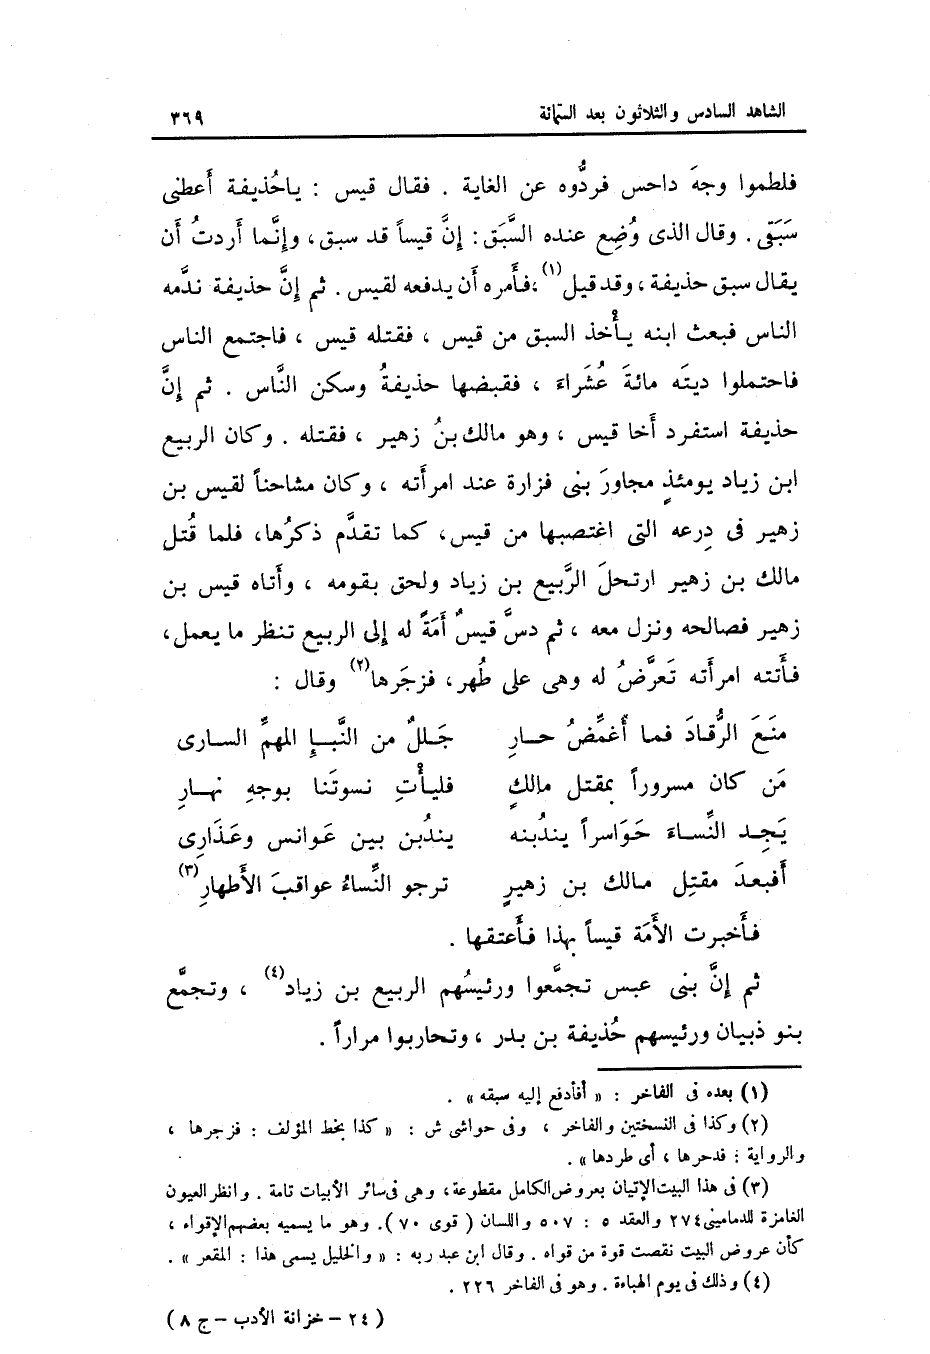 الشاهد السادس والثلاثون بعد الستمائة ٣٦٩
فلطموا وجهَ داحس فردُّوه عن الغاية . فقال قيس : ياحُذيفة أَعطنى
سَبَقى . وقال الذى وُضِع عنده السَّبَق : إنَّ قيساً قد سبق ، وإنَّما أردتُ أن
يقال سبق حذيفة ، وقد قيل (١) ، فأَمره أن يدفعه لقيس . ثم إنَّ حذيفة ندَّمه
الناس فبعث ابنه يأْخذ السبق من قيس ، فقتله قيس ، فاجتمع الناس
فاحتملوا ديتَه مائةَ عُشَراءَ ، فقبضها حذيفةُ وسكن النَّاس . ثم إنَّ
حذيفة استفرد أَخا قيس ، وهو مالك بنُ زهير ، فقتله . وكان الربيع
ابن زياد يومئذٍ مجاورَ بنى فزارة عند امرأَته ، وكان مشاحناً لقيس بن
زهير فى دِرعه التى اغتصبها من قيس ، كما تقدَّم ذكرُها ، فلما قُتل
مالك بن زهير ارتحلَ الرَّبيع بن زياد ولحق بقومه ، وأَتاه قيس بن
زهير فصالحه ونزل معه ، ثم دسَّ قيسٌ أَمَةً له إلى الربيع تنظر ما يعمل ،
فأَتته امرأَته تَعرَّضُ له وهى على طُهر ، فزجَرها (٢) وقال :
مَنَعَ الرُّقادَ فما أُغمِّضُ حـارِ جَـللٌ من النَّبـإِ المهمِّ السـارى
مَن كان مسروراً بمقتل مالكٍ فليـأْتِ نسوتَنا بوجهِ نهـارِ
يَجِـد النِّسـاءَ حَوَاسراً يندُبنه يندُبن بين عَوانس وعَذَارِى
أَفبعدَ مقتِل مـالك بن زهيرٍ تـرجو النِّساءُ عواقبَ الأَطهارِ (٣)
فـأَخبرت الأَمَة قيساً بهذا فـأَعتقها .
ثم إنَّ بنى عبس تجمَّعوا ورئيسُهم الربيع بن زياد (٤) ، وتجمَّع
بنو ذبيان ورئيسهم حُذيفة بن بدر ، وتحاربوا مراراً .
(١) بعده فى الفاخر : « أفأدفع إليه سبقه » .
(٢) وكذا فى النسختين والفاخر ، وفى حواشى ش : « كذا بخط المؤلف : فزجرها ،
والرواية : فدحرها ، أى طردها » .
(٣) فى هذا البيت الإتيان بعروض الكامل مقطوعة ، وهى فى سائر الأبيات تامة . وانظر العيون
الغامزة للدمامينى ٢٧٤ والعقد ٥ : ٥٠٧ واللسان ( قوى ٧٠ ). وهو ما يسميه بعضهم الإقواء ،
كأن عروض البيت نقصت قوة من قواه . وقال ابن عبد ربه : « والخليل يسمى هذا : المقعر » .
(٤) وذلك فى يوم الهباءة . وهو فى الفاخر ٢٢٦ .
( ٢٤ – خزانة الأدب – ج ٨ )